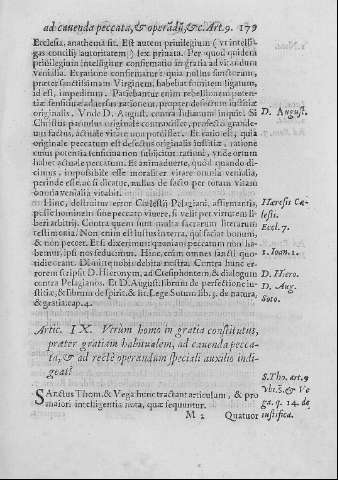 ad cauenda peccata, & operādū, &c. Art. 9. 179
Ecclesia, anathema sit. Est autem priuilegium (vt intelli-
gas concilij autoritatem) lex priuata. Per quod quidem
priuilegium intelligitur confirmatio in gratia ad vitanda
venialia. Et ratione confirmatur: quia nullus sanctorum,
præter sanctissimam Virginem, habebat fomitem ligatum,
id est, impeditum. Patiebantur enim rebellionem poten-
tiæ sensitiuæ aduersus rationem, propter defectum iustitiæ
originalis. Vnde D. August. contra Iulianum inquit. Si
Christus paruulus originale contraxisset, profecto grande-
uus factus, actuale vitare non potuisset. Et ratio est; quia
originale peccatum est defectus originalis iustitiæ, ratione
cuius potentia sensitiua non subijcitur rationi, vnde ortum
habet actuale peccatum. Et animaduerte, quod quando di-
cimus, impossibile esse moraliter vitare omnia venialia,
perinde esse, ac si dicatur, nullus de facto per totam vitam
omnia venialia vitabit.
Hinc, destruitur error Cælestij Pelagiani, affirmantis,
posse hominem sine peccato viuere, si velit per virtutem li-
beri arbitrij. Contra quem sunt multa sacrarum literarum
testimonia. Non enim est iustus in terra, qui faciat bonum,
& non peccet. Et si dixerimus quoniam peccatum non ha-
bemus, ipsi nos seducimus. Hinc, enim omnes sancti quo-
tidie orant. Dimitte nobis debita nostra. Contra hunc er-
rorem scripsit D. Hieronym. ad Ctesiphontem, & dialogum
contra Pelagianos. Et D. August. librum de perfectione iu-
stitiæ, & librum de spirit. & lit. Lege Sotum lib. 3. de natura,
& gratia, cap. 4.
D. August.
Hæresis Cæ-
lestij.
Eccl. 7.
1. Ioan. 1.
D. Hiero.
D. Aug.
Soto.
Artic. IX. Verùm homo in gratia constitutus,
præter gratiam habitualem, ad cauenda pecca-
ta, & ad rectè operandum speciali auxilio indi-
geat?
SAnctus Thom. & Vega hunc tractant articulum, & pro
maiori intelligentia nota, quæ sequuntur.
S. Tho. art. 9
Vbi. s. & Ve
ga. q. 14. de
iustifica.
M 2 Quatuor